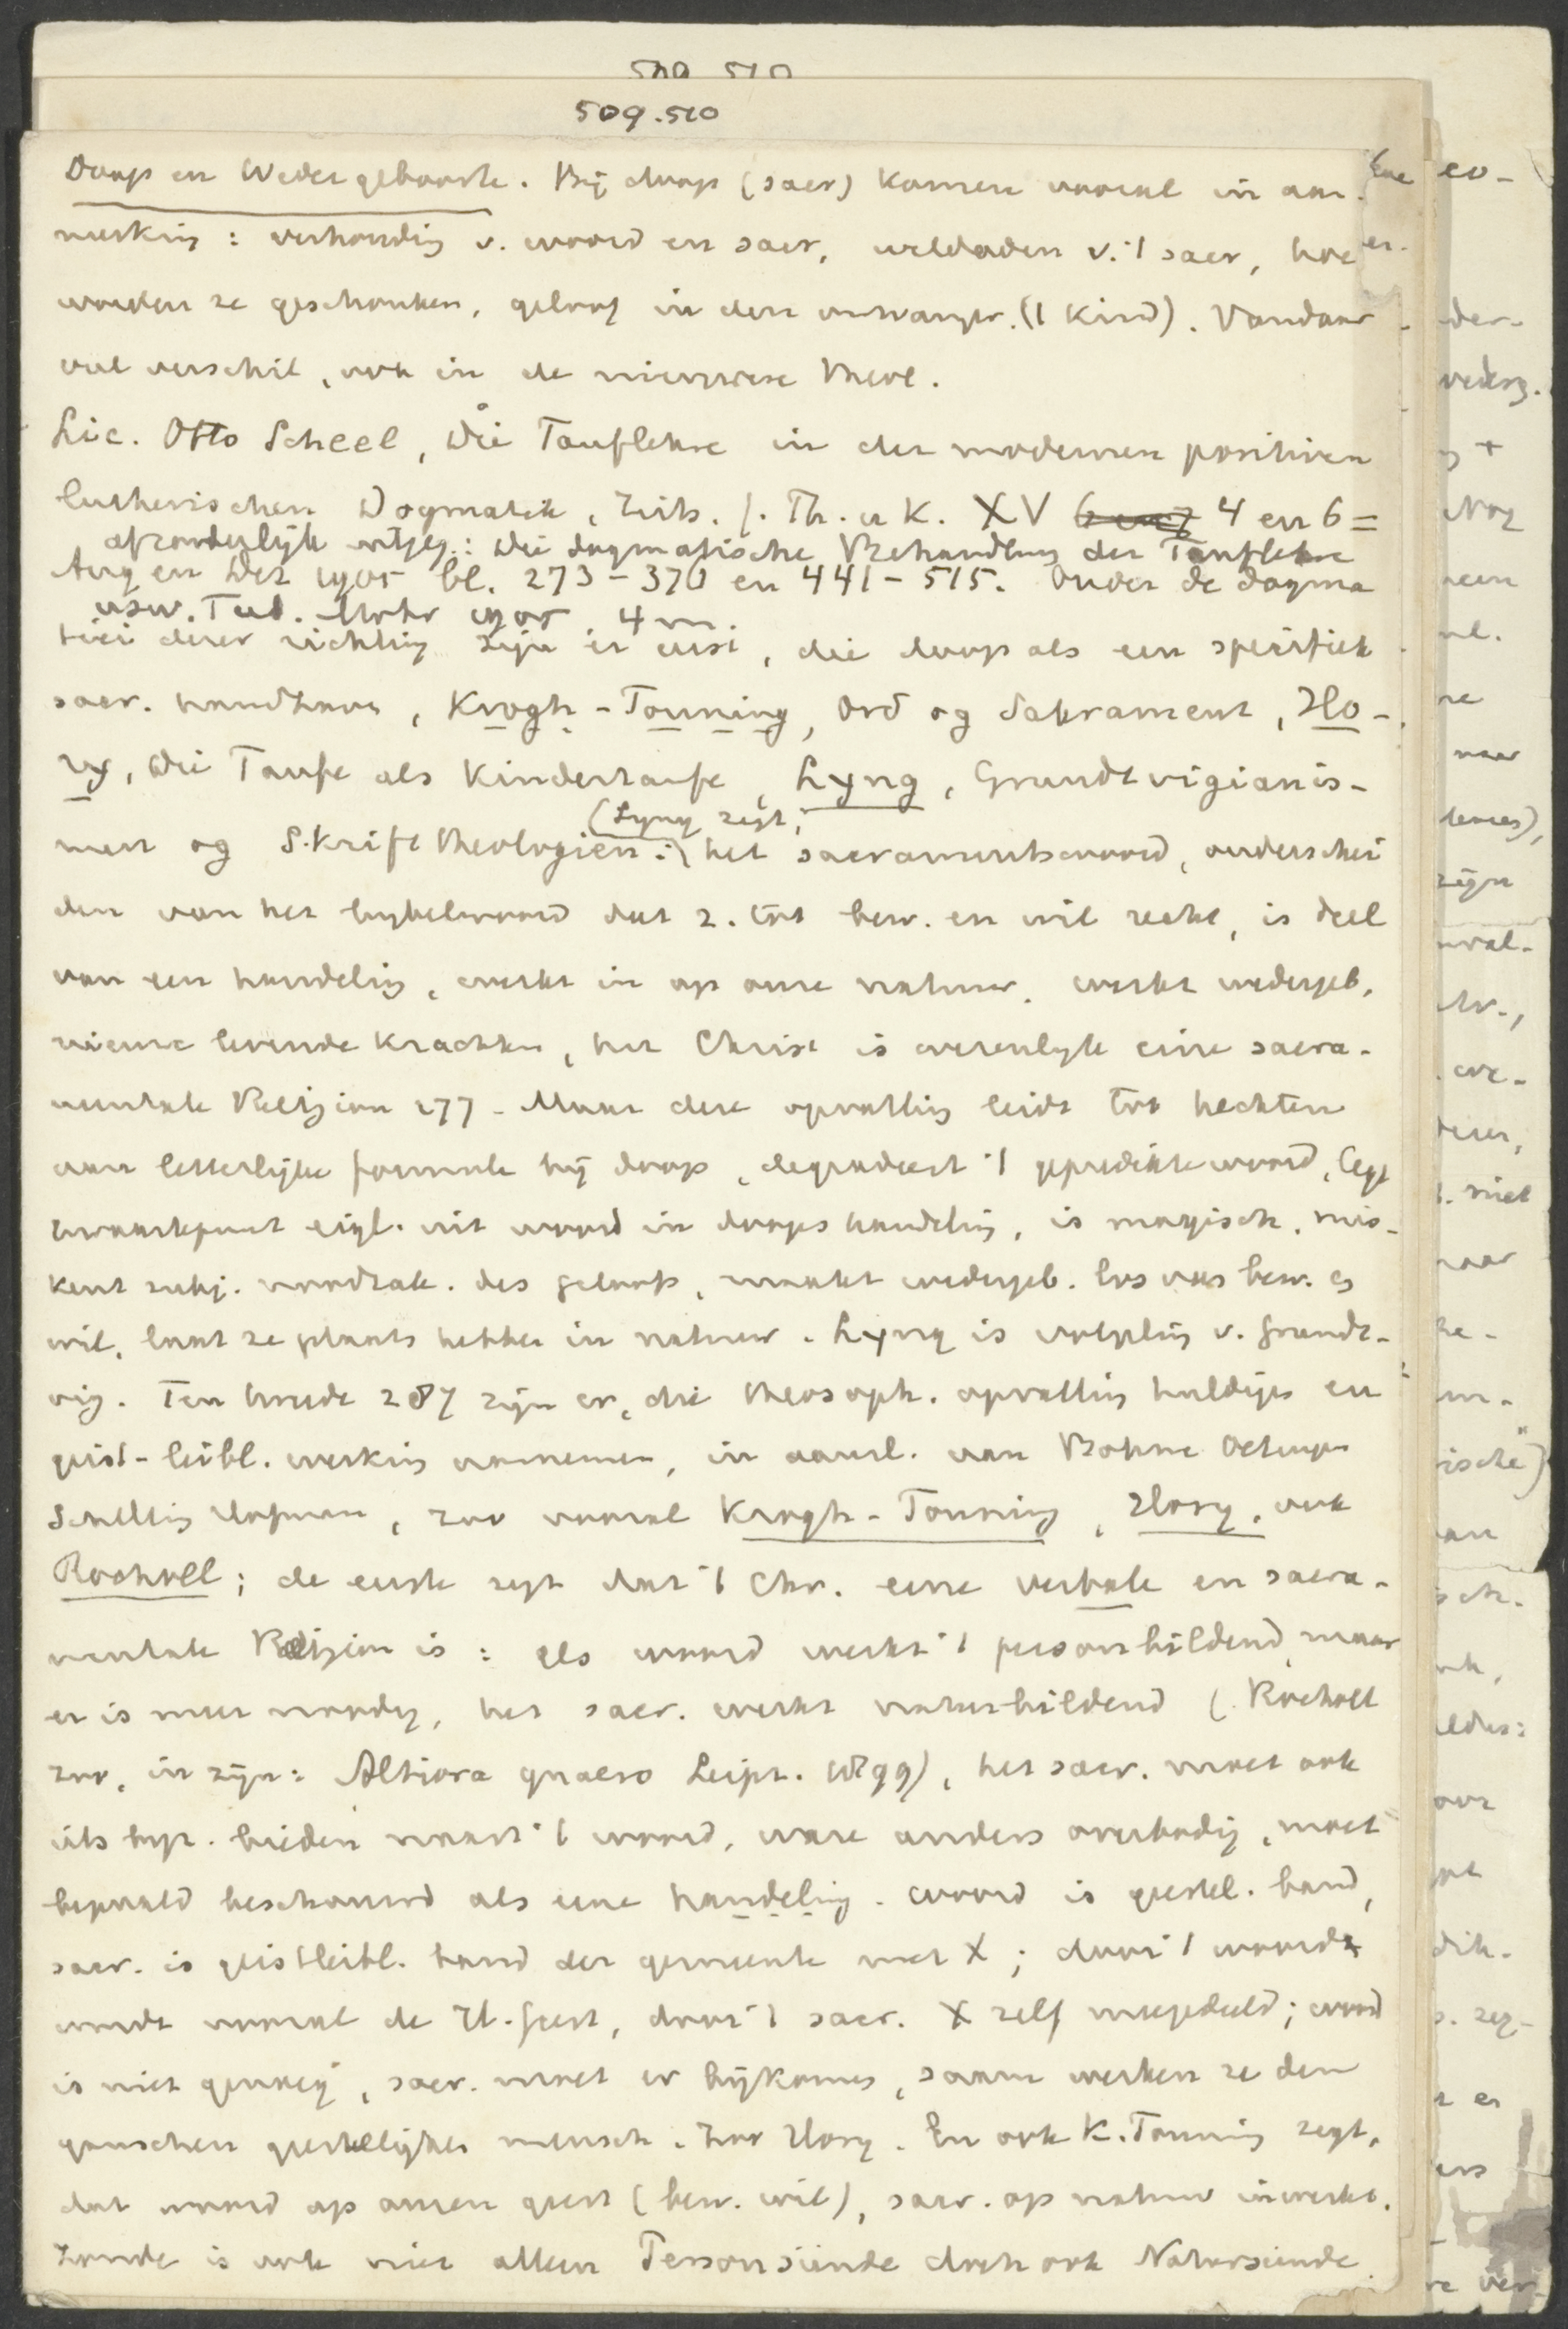 509.510
509.510
Doop en Wedergeboorte. Bij doop (sacr) komen vooral in aan-
merking: verhouding v. woord en sacr, weldaden v. 't sacr, hoe
worden ze geschonken, geloof in den ontvanger. ('t kind). Vandaar
veel verschil, ook in de nieuwere theol.
Lic. Otto Scheel, Die Tauflehre in der modernen positiven
lutherischen Dogmatik, Zeits. f. Th. u K. XV 4 en 6 =
afzonderlijk uitgeg.: Die dogmatische Behandlung der Tauflehre
Aug en Dez 1905 bl. 273-370 en 441-515. Onder de dogma
usw. Tub. Mohr 1905 4 m.
tici dezer richting zijn er eerst, die doop als een specifiek
sacr. handhaven, Krogh-Tonning, Ord og Sakrament, Ho-
ry, Die Taufe als Kindertaufe, Lyng, Grundtvigianis-
men og Skrifttheologien: (Lyng zegt;
het sacramentswoord, onderschei
den van het bybelwoord dat z. tot bew. en wil richt, is deel
van een handeling, werkt in op onze natuur, werkt wedergeb.
nieuwe levende krachten, het Christ is wezenlyk eine sacra-
mentale Religion 277 - Maar deze opvatting leidt tot hechten
aan letterlijke formule bij doop, degradeert 't gepredikte woord, legt
zwaartepunt eigl. uit woord in doopshandeling, is magisch, mis-
kent subj. noodzak. des geloofs, maakt wedergeb. los van bew. en
wil, laat ze plaats hebben in natuur. Lyng is volgeling v. Grundt-
vig. Ten tweede 287 zijn er, die theosoph. opvatting huldigen en
geist-leibl. werking aannemen, in aansl. aan Bohme Oetinger
Schelling Hofman, zoo vooral Krogh-Tonning, Hory, ook
Rocholl; de eerste zegt dat 't Chr. eine verbale en sacra-
mentale Religion is: als woord werkt 't personbildend, maar
er is meer noodig, het sacr. werkt naturbildend (Rocholl
zoo, in zijn: Altiora quaero Leipz. 1899), het sacr. moet ook
iets byz. bieden naast 't woord, ware anders overbodig, moet
bepaald beschouwd als eene handeling. Woord is geestel. band,
sacr. is geistleibl. band der gemeente met X; door 't woord
wordt vooral de H. Geest, door 't sacr. X zelf meegedeeld; woord
is niet genoeg, sacr. moet er bijkomen, saam werken ze den
ganschen geestelijken mensch. Zoo Hory. En ook K. Tonning zegt,
dat woord op onzen geest (bew. wil), sacr. op natuur inwerkt.
Zonde is ook niet alleen Personsünde doch ook Natursünde.